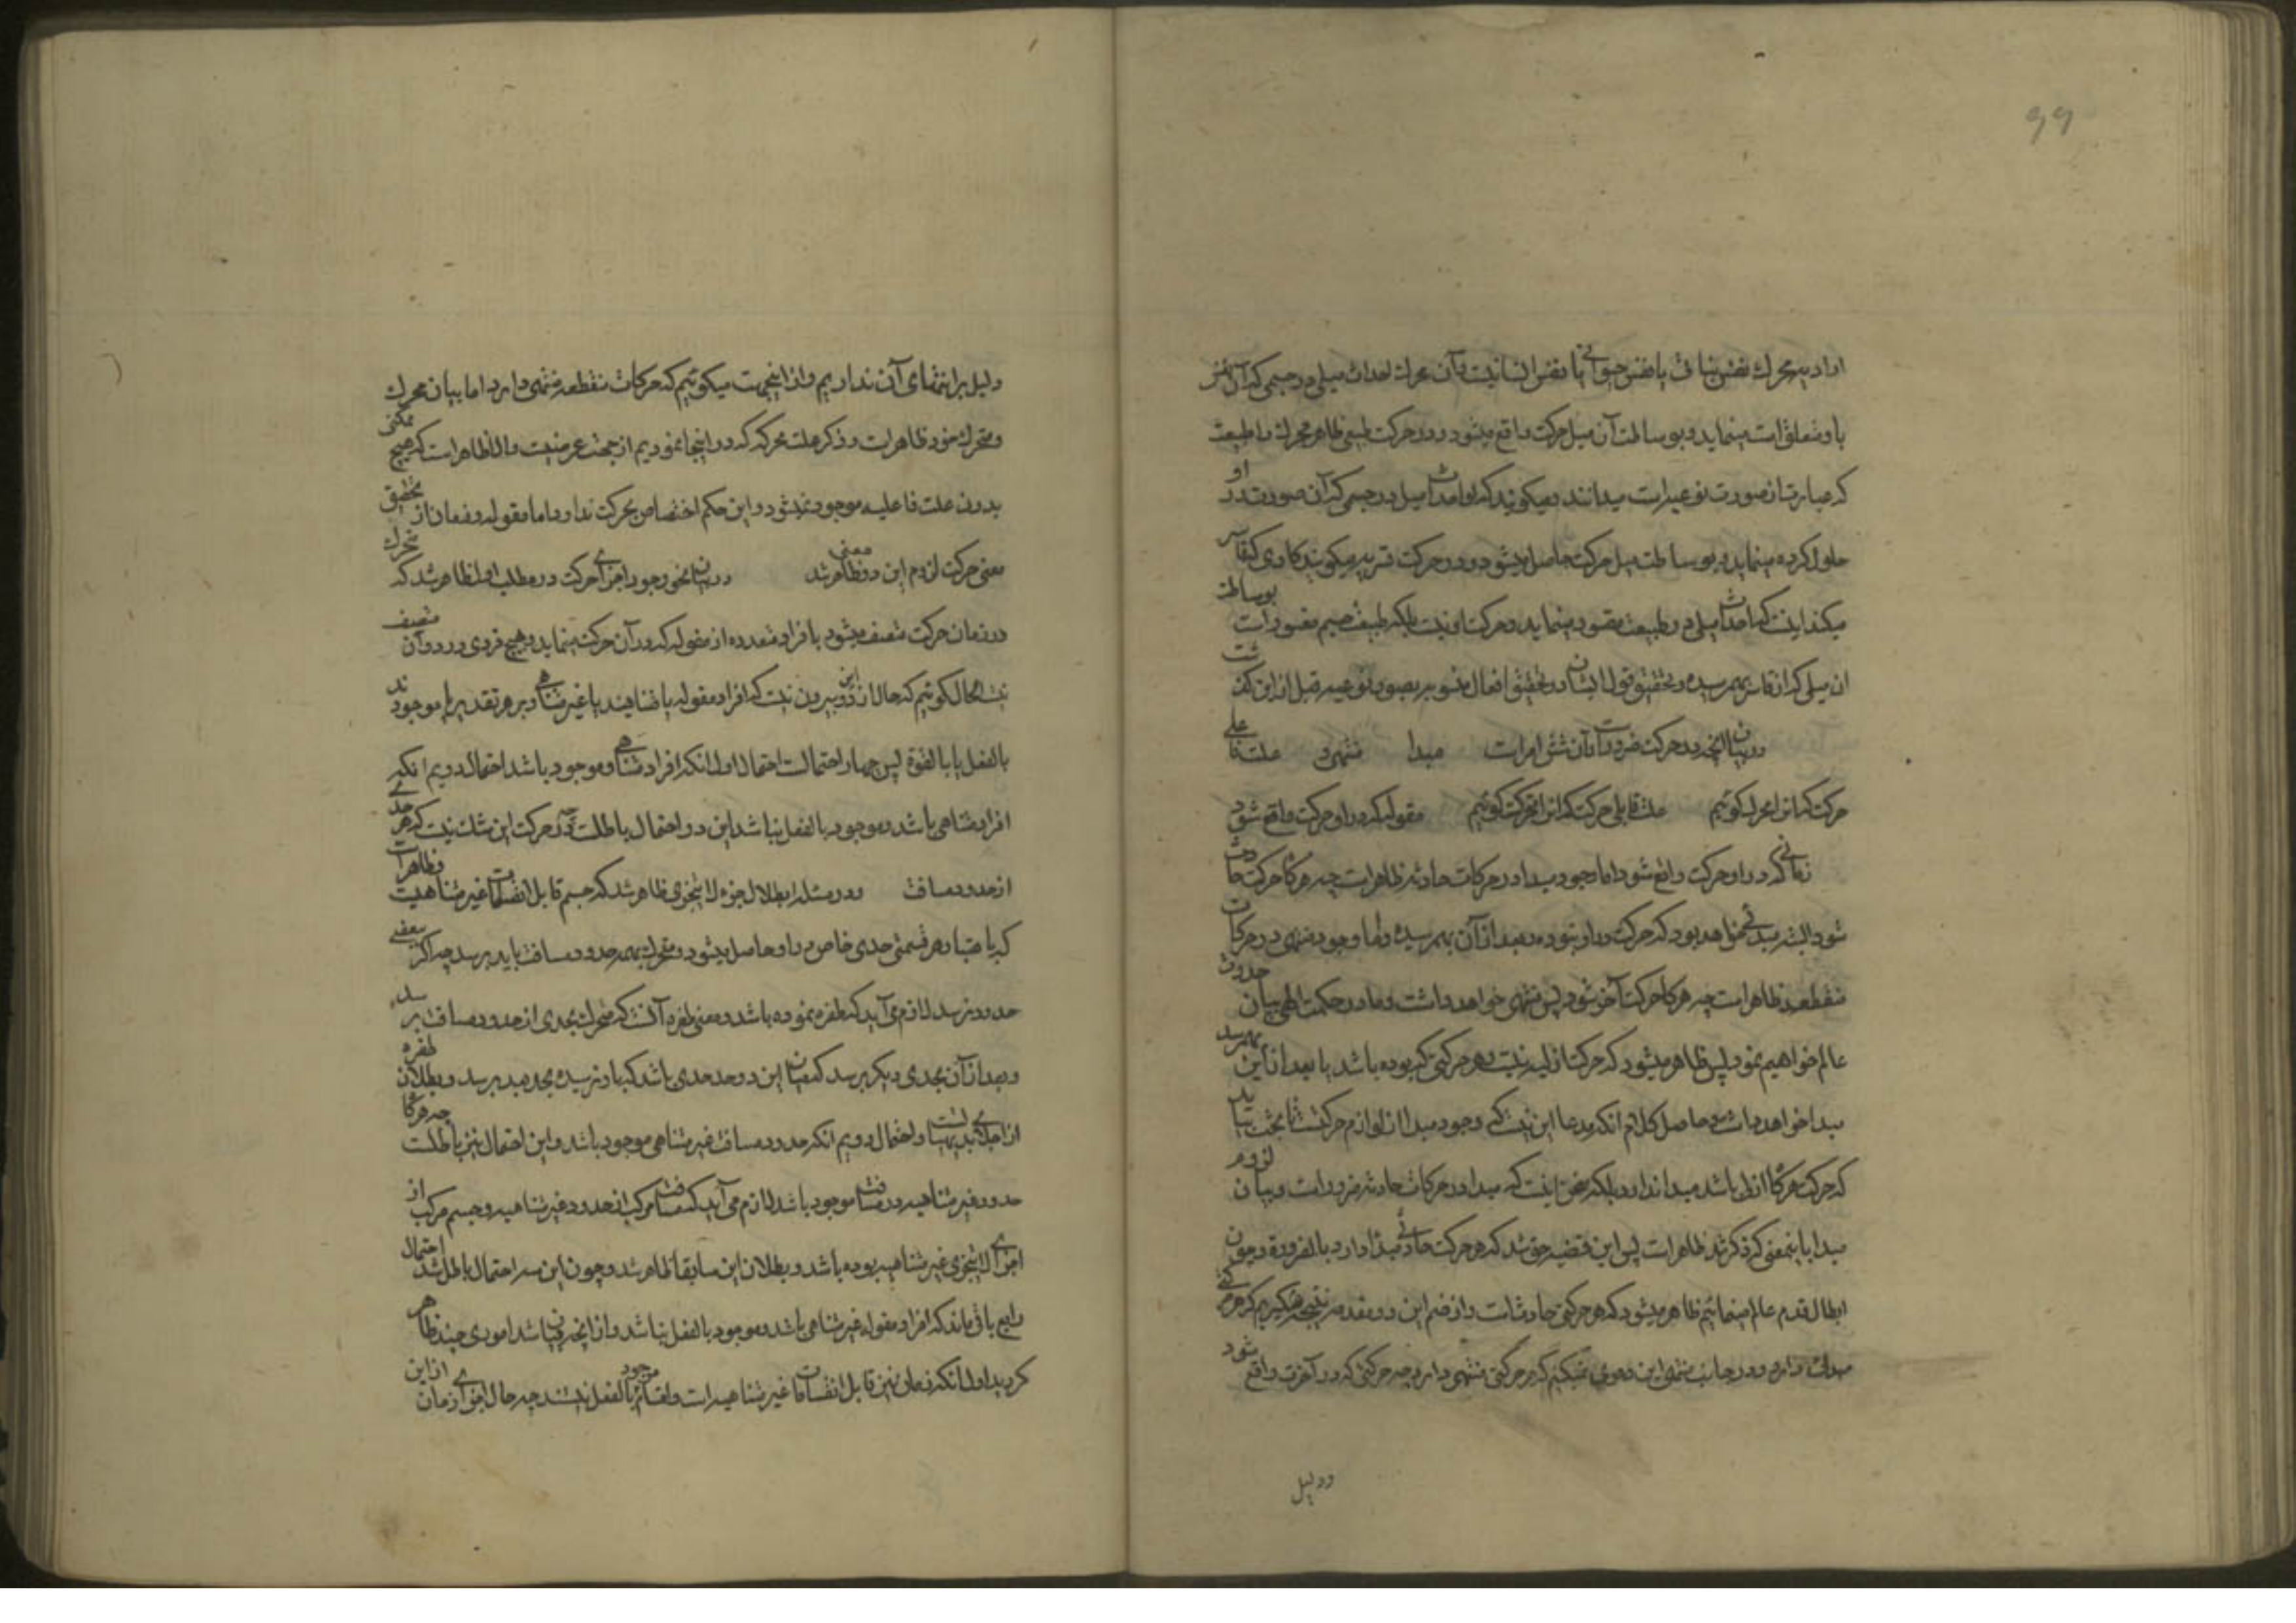 99
ارادیه محرك نفس نباتی یا نفس حیوانی یا نفس انسانیت و آن محرك احداث میلی در جسمی که آن نفس
باو متعلق است مینماید و بوساطت آن میل حرکت واقع میشود و در حرکت طبیعی ظاهر محرك را طبیعت
که عبارت از صورت نوعیه است میدانند و میکویند که او احداث میل در جسمی که آن صورت در او
حلول کرده مینماید و بوساطت میل حرکت حاصل میشود و در حرکت قسریه میکویند کاری که قاسر
میکند اینست که احداث میلی در طبیعت مقسور مینماید و حرکت از او نیست بلکه طبیعت جسم مقسور است بوساطت
ان میلی که از قاسر بهم رسیده و تحقیق قول ایشان در تحقیق افعال منسوبه بصور نوعیه قبل از این گذشت
در بیان آنچه در حرکت ضرور است و آن شش امر است مبدا منتهی علت فاعلی
حرکت که انرا محرك کوئیم علت قابلی حرکت که انرا متحرك کوئیم مقوله که در او حرکت واقع شود
زمانی که در او حرکت واقع شود اما وجود مبدا در حرکات حادثه ظاهر است چه هرکاه حرکت حادث
شود البته مبدائی خواهد بود که حرکت در او نبوده و بعد از آن بهم رسیده و اما وجود منتهی در حرکات
منقطعه ظاهر است چه هرکاه حرکت آخر شود پس منتهی خواهد داشت و ما در حکمت الهی بیان حدوث
عالم خواهیم نمود پس ظاهر میشود که حرکت ازلیه نیست و هر حرکتی که بوده باشد یا بعد از این بهم رسد
مبدا خواهد داشت و حاصل کلام انکه مدعا این نیست که وجود مبدا از لوازم حرکتست تا بحث بیاید
که حرکت هرکاه ازلی باشد مبدا ندارد بلکه غرض اینست که مبدا در حرکات حادثه ضرور است و بیان لزوم
مبدا باینمعنی که ذکر شد ظاهر است پس این قضیه حق شد که هر حرکت حادثی مبدا دارد بالضرورة و چون
ابطال قدم عالم مینمائیم ظاهر میشود که هر حرکتی حادث است و از ضم این دو مقدمه نتیجه میکیریم که هر حرکتی
مبدائی دارد و در جانب منتهی این دعوی نمیکنیم که هر حرکتی منتهی دارد چه حرکتی که در آخرت واقع شود
و دلیل
دلیل بر انتفای آن نداریم و از اینجهت میکوئیم که حرکات منقطعه منتهی دارد اما بیان محرك
و متحرك خود ظاهر است و ذکر علت محرکه که در اینجا نمودیم از جهت غرضیت والا ظاهر است که هیچ ممکنی
بدون علت فاعلیه موجود نمیشود و این حکم اختصاص بحرکت ندارد و اما مقوله و زمان از تحقیق
معنی حرکت لزوم این دو معنی ظاهر شد در بیان نحو وجود اجزای حرکت در مطلب اول ظاهر شد که متحرك
در زمان حرکت متصف میشود بافراد متعدده از مقوله که در آن حرکت مینماید و هیچ فردی در دو آن متصف
نیست الحال کوئیم که حال از این دو بیرون نیست که افراد مقوله یا متناهیند یا غیر متناهی و بر هر تقدیر یا موجودند
بالفعل یا بالقوة پس چهار احتمالست احتمال اول انکه افراد متناهی و موجود باشد احتمال دویم انکه
افراد متناهی باشد و موجود بالفعل نباشد این دو احتمال باطلست چه در حرکت این مثلث نیست که هر حدی
از حدود مسافت و در مسئله ابطال جزو لا یتجزی ظاهر شد که جسم قابل انقسامات غیر متناهیست و ظاهر است
که باعتبار هر قسمتی حدی خاص در او حاصل میشود و متحرك بهمه حدود مسافت باید برسد چه اکر ببعضی
حدود نرسد لازم می آید که طفره نموده باشد و معنی طفره آنست که متحرك بحدی از حدود مسافت برسد
و بعد از آن بحدی دیکر برسد که میان این دو حد حدی باشد که باو نرسیده بحد بعد برسد و بطلان طفره
از اجلای بدیهیاتست و احتمال دویم انکه حدود مسافت غیر متناهی موجود باشد و این احتمال نیز باطلست چه هرکاه
حدود غیر متناهیه در مسافت موجود باشد لازم می آید که مسافت مرکب از حدود غیر متناهیه و جسم مرکب از
اجزای لا یتجزی غیر متناهیه بوده باشد و بطلان این سابقا ظاهر شد و چون این سه احتمال باطل شد احتمال
رابع باقی ماند که افراد مقوله غیر متناهی باشد و موجود بالفعل نباشد و از انچه بیان شد اموری چند ظاهر
کردید اول انکه زمان نیز قابل انقسامات غیر متناهیه است و اقسام موجود بالفعل نیستند چه حال اجزای زمان از این